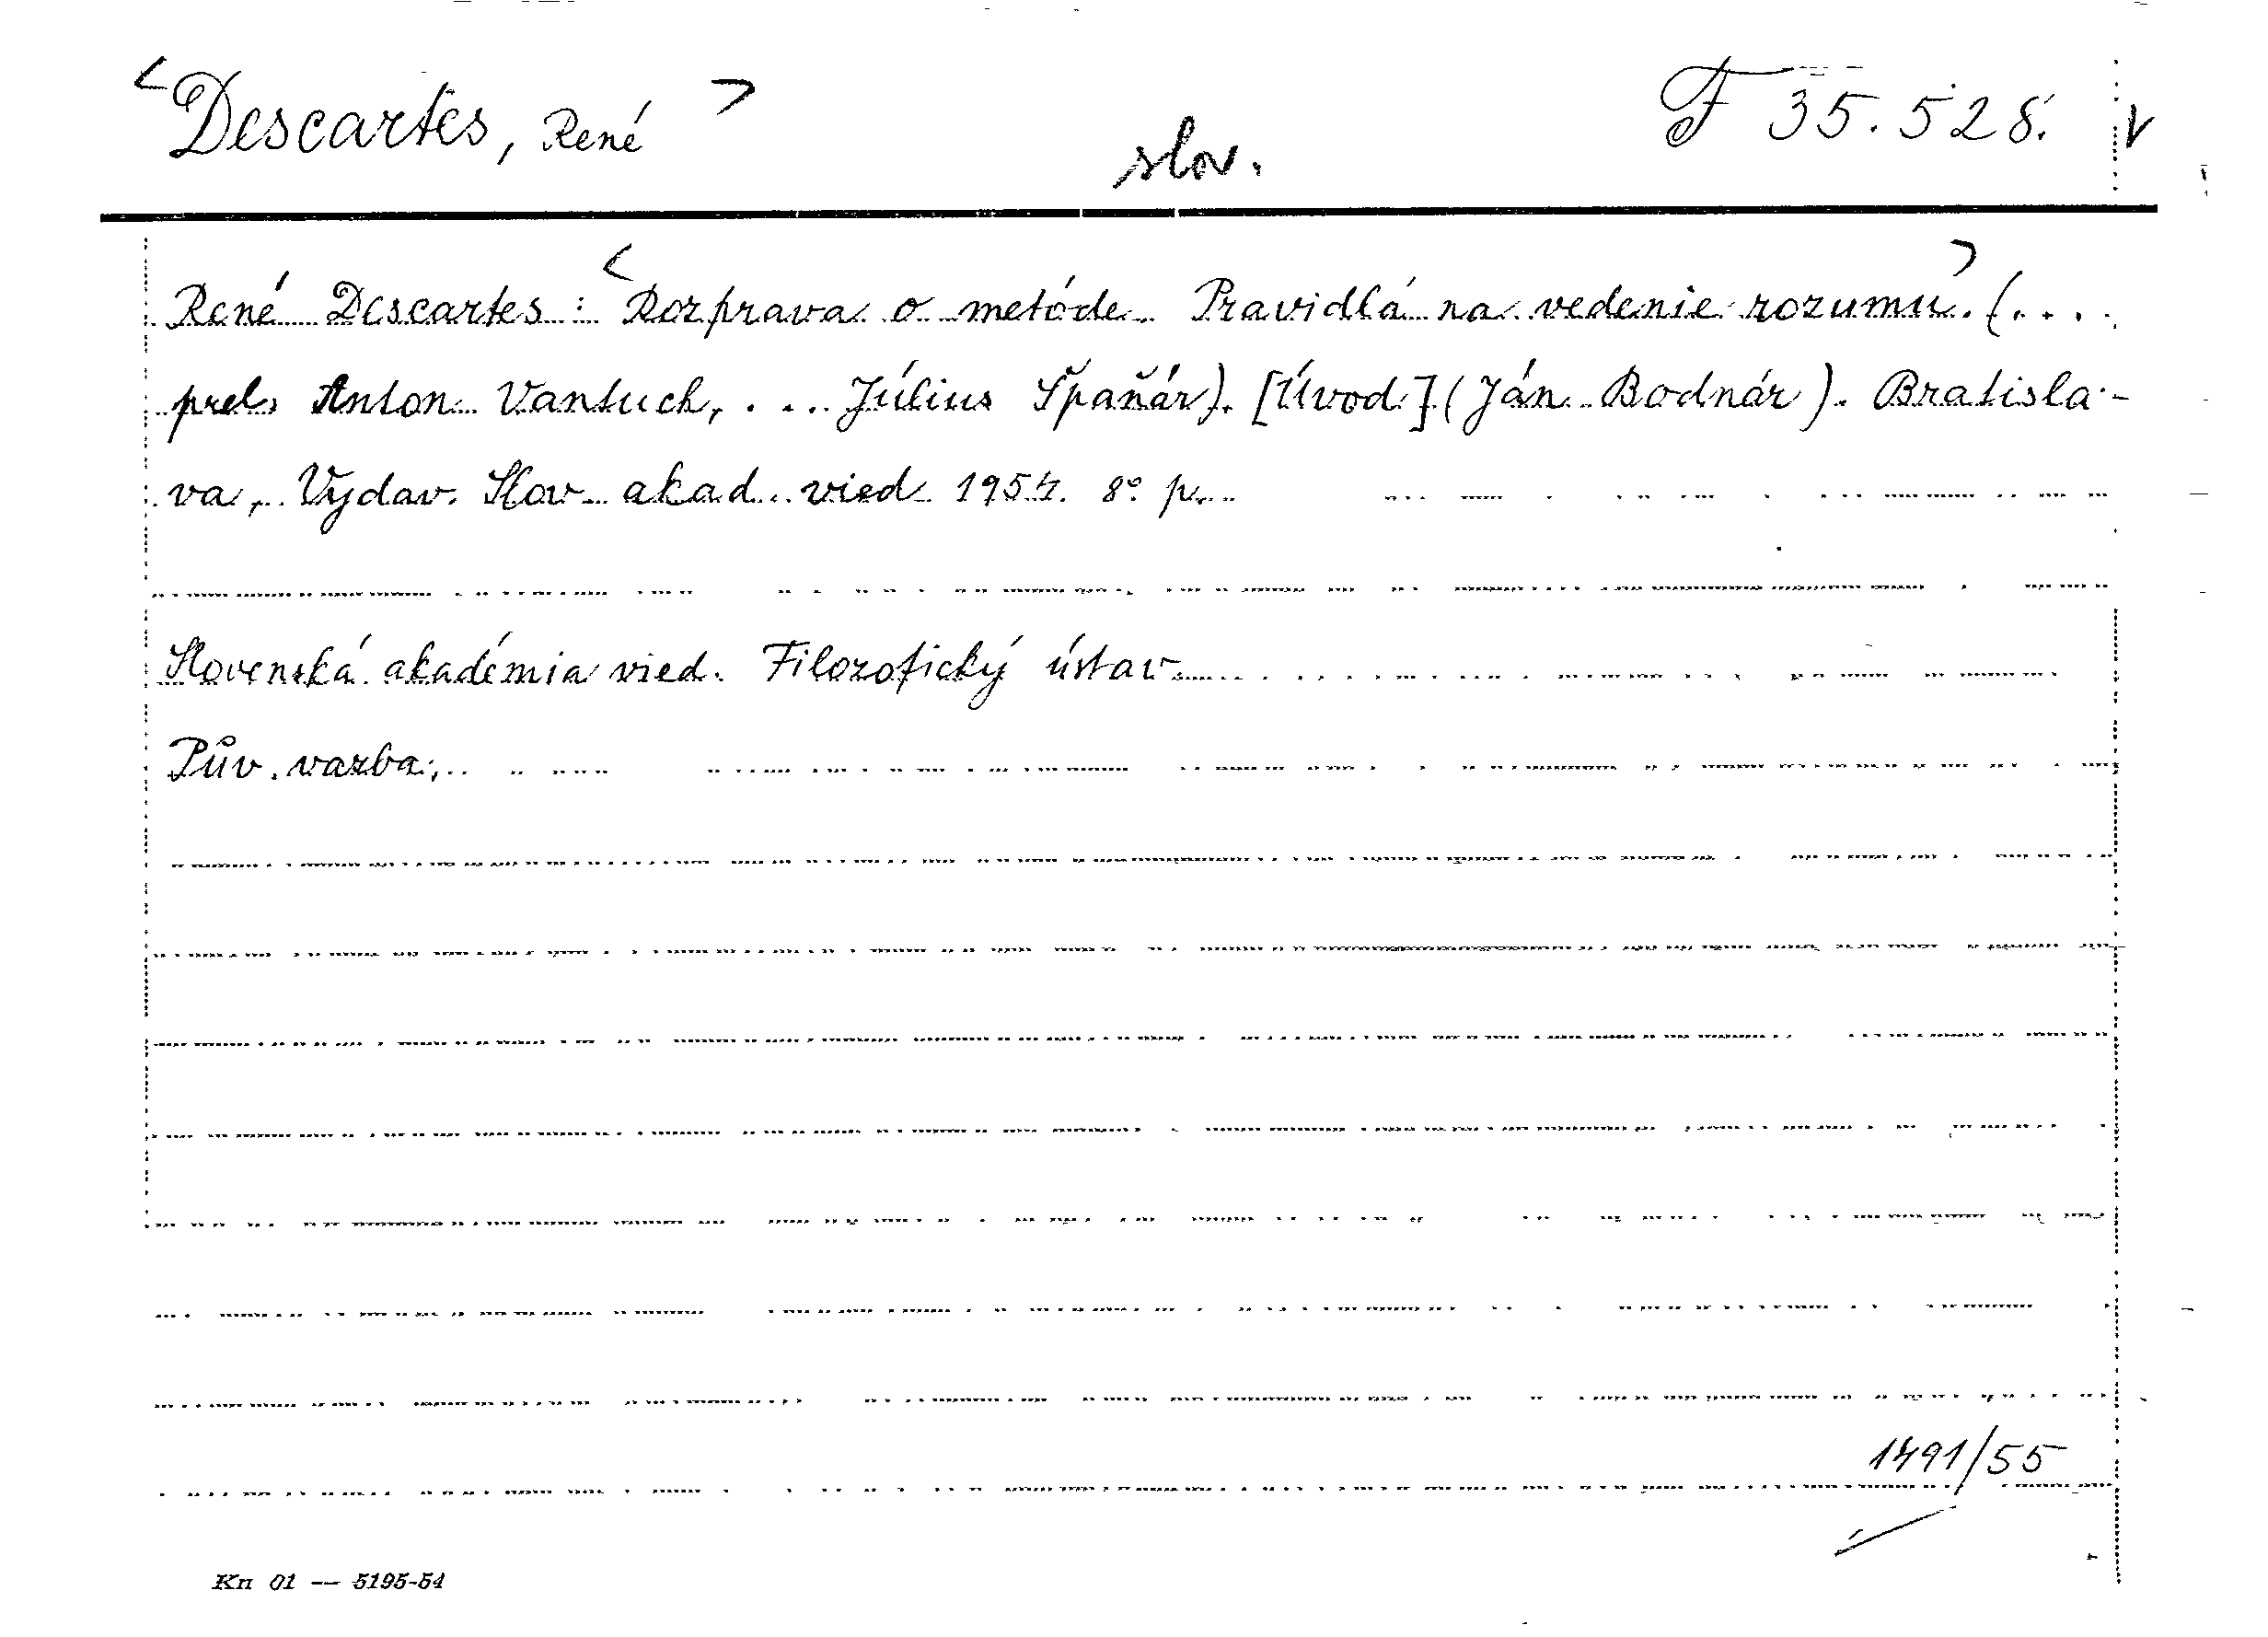 <Descartes, René>
F 35.528. V
slov.
René Descartes: <Rozprava o metóde Pravidlá na vedenie rozumu>. (...
prel. Anton Vantuch, ... Július Špaňár). [Úvod] (Ján Bodnár). Bratisla-
va, Vydav. Slov. akad. vied 1954. 8° p.
Slovenská akadémia vied. Filozofický ústav.
Pův. vazba;
1491/55
Kn 01 — 5195-54